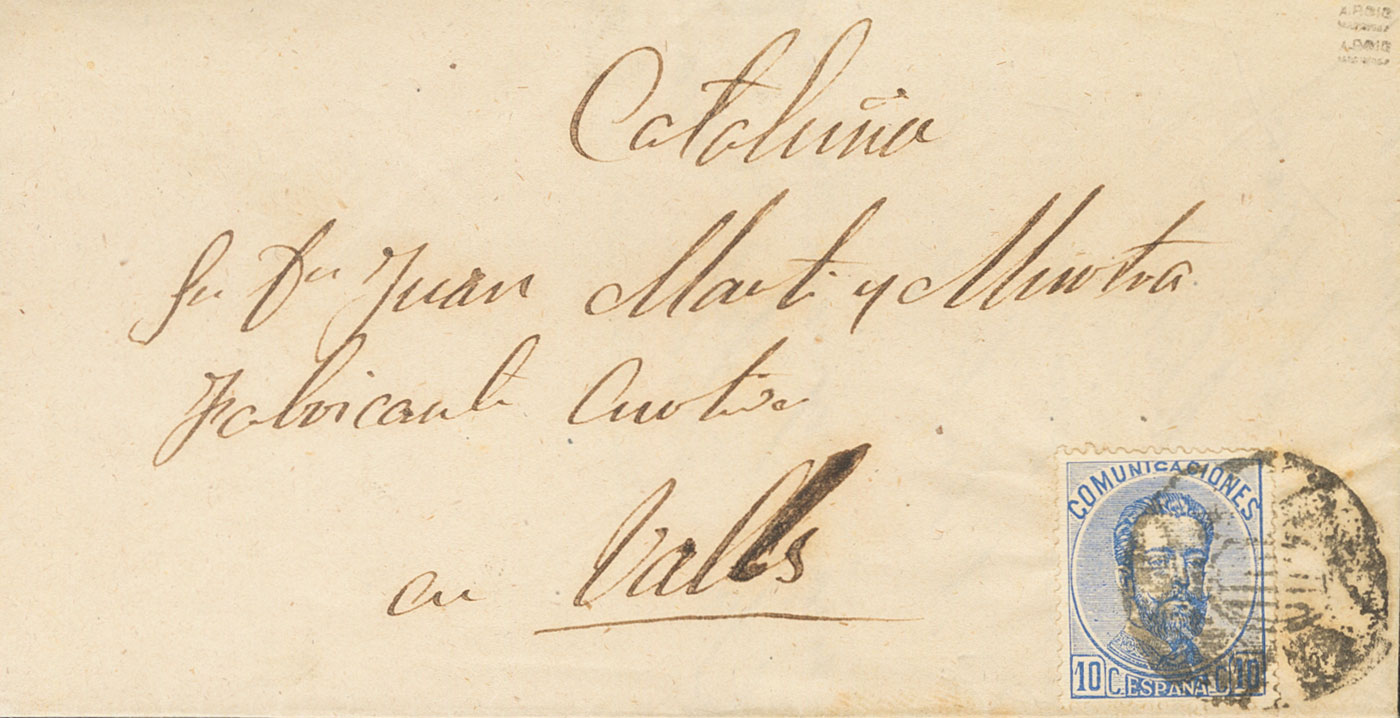 Cataluña
Sr Dn Juan Marti y
Fabricante
en Valls
COMUNICACIONES
10 C. ESPAÑA C. 10
A. ROIG
A. ROIG